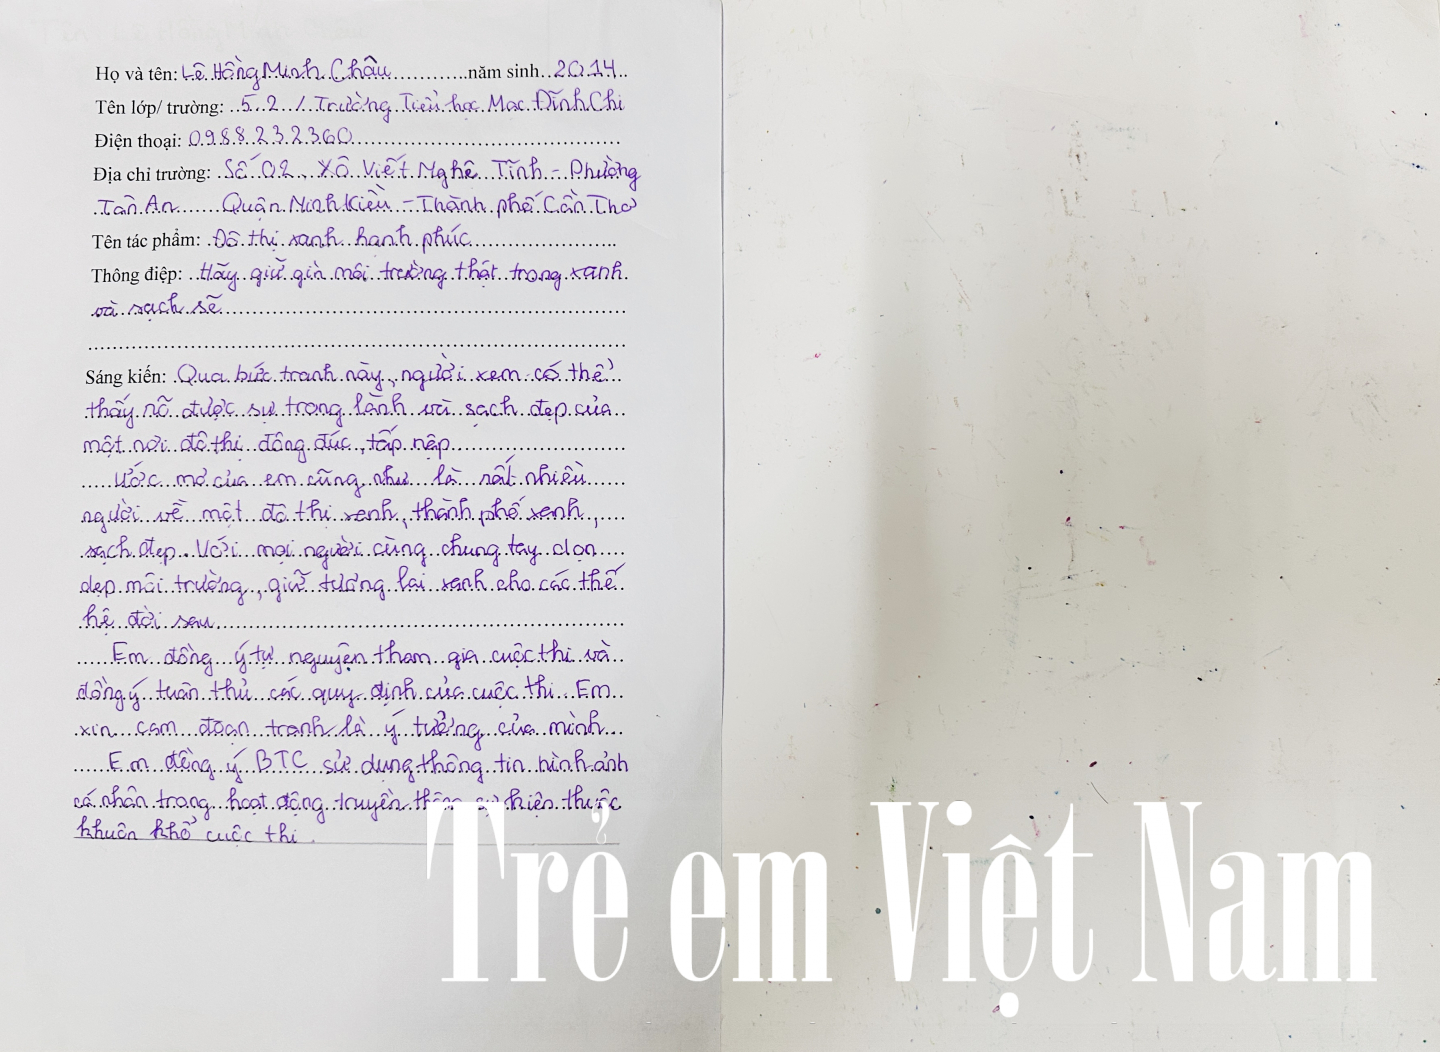 Họ và tên: Lê Hồng Minh Châu năm sinh 2014
Tên lớp/ trường: 5.2 / Trường Tiểu học Mạc Đĩnh Chi
Điện thoại: 0988232360
Địa chỉ trường: Số 02, Xô Viết Nghệ Tĩnh - Phường
Tân An Quận Ninh Kiều - Thành phố Cần Thơ
Tên tác phẩm: Đô thị xanh hạnh phúc
Thông điệp: Hãy giữ gìn môi trường thật trong xanh
và sạch sẽ
Sáng kiến: Qua bức tranh này, người xem có thể
thấy rõ được sự trong lành và sạch đẹp của
một nơi đô thị đông đúc, tấp nập
Ước mơ của em cũng như là rất nhiều
người về một đô thị xanh, thành phố xanh,
sạch đẹp. Với mọi người cùng chung tay dọn
dẹp môi trường, giữ tương lai xanh cho các thế
hệ đời sau
Em đồng ý tự nguyện tham gia cuộc thi và
đồng ý tuân thủ các quy định của cuộc thi. Em
xin cam đoan tranh là ý tưởng của mình
Em đồng ý BTC sử dụng thông tin hình ảnh
cá nhân trong hoạt động truyền thông sự kiện thuộc
khuôn khổ cuộc thi.
Trẻ em Việt Nam